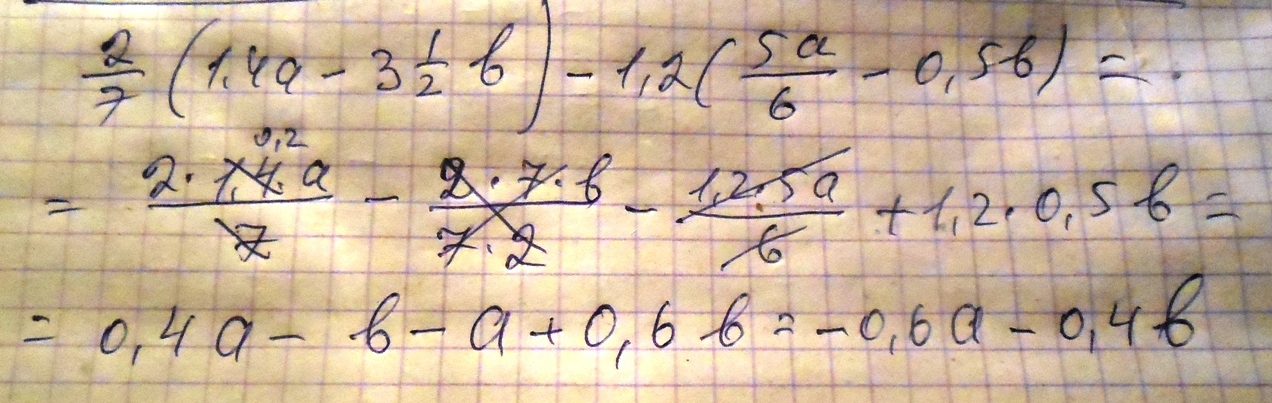 2/7 (1,4a - 3 1/2 b) - 1,2 (5a/6 - 0,5b) =
= 2·1,4·a/7 0,2 - 2·7·b/7·2 - 1,2·5a/6 + 1,2·0,5b =
= 0,4a - b - a + 0,6b = -0,6a - 0,4b